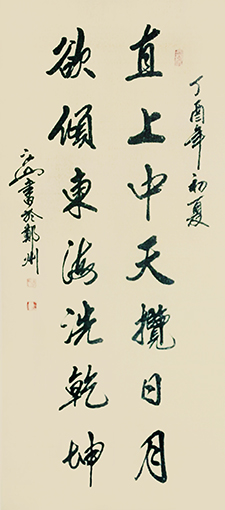 丁酉年初夏
直上中天攬日月
欲傾東海洗乾坤
書於鄭州